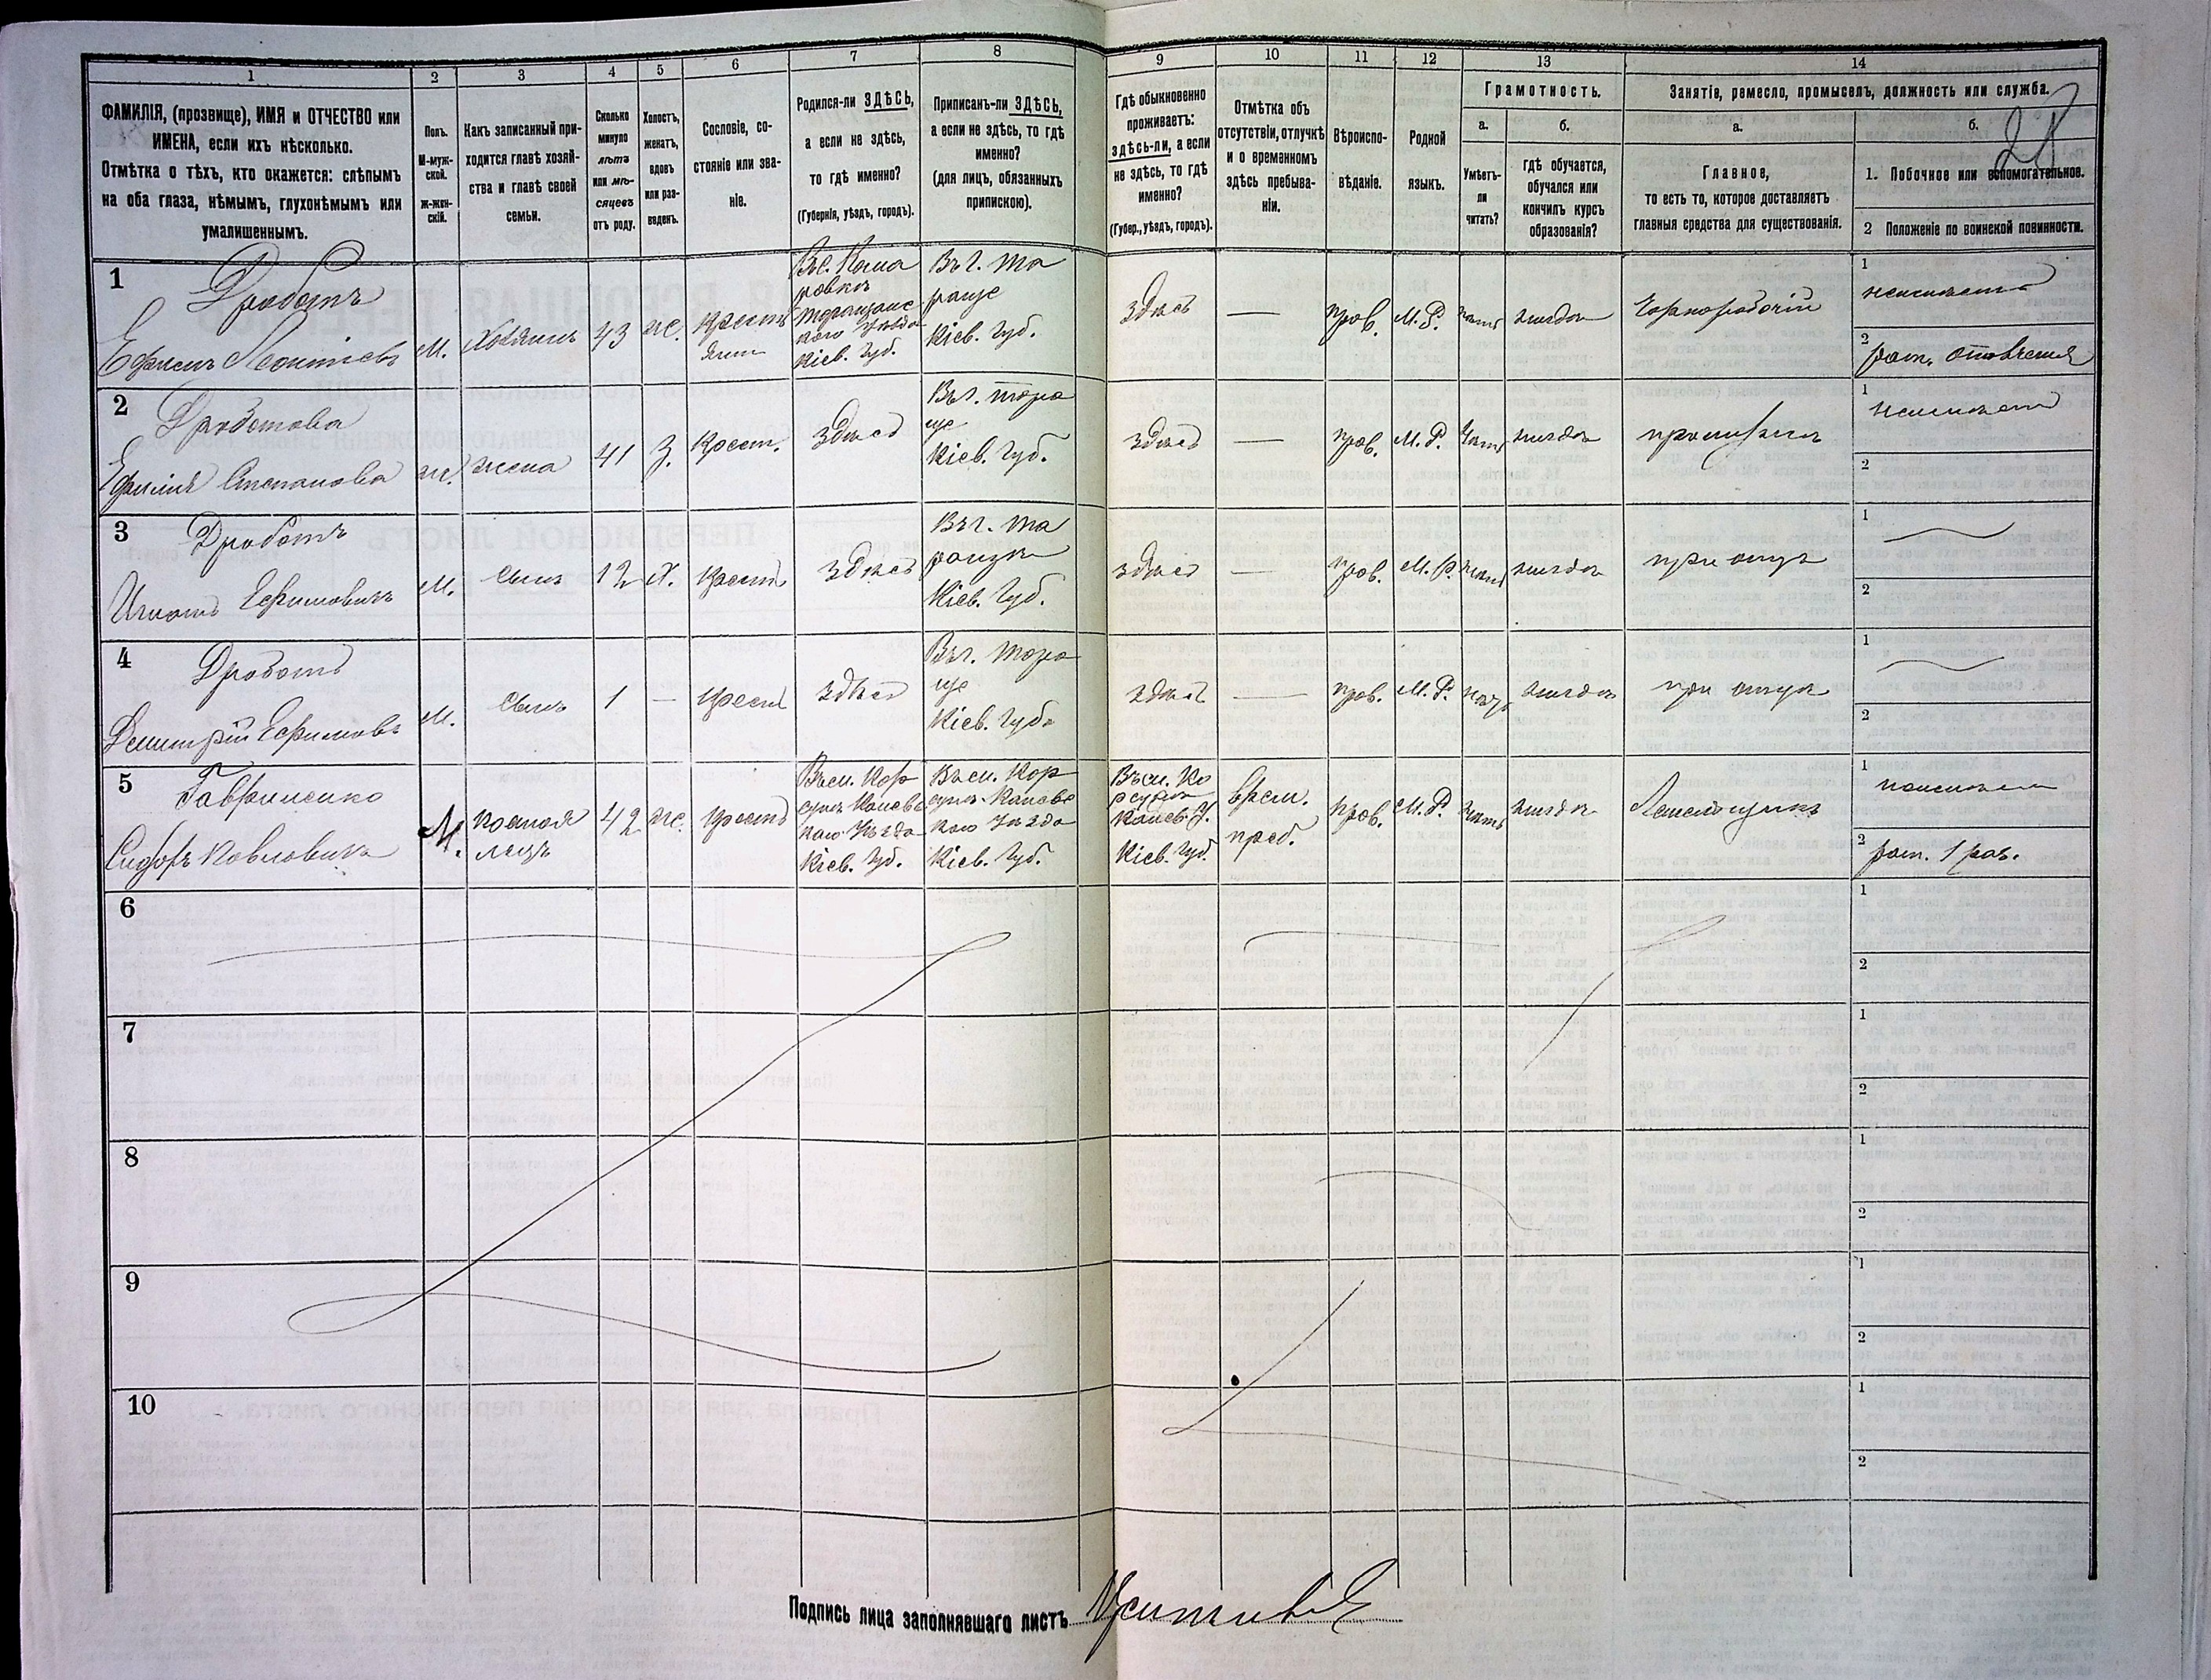 1 2 3 4 5 6 7 8 9 10 11 12 13 14
ФАМИЛІЯ, (прозвище), ИМЯ и ОТЧЕСТВО или
ИМЕНА, если ихъ нѣсколько.
Отмѣтка о тѣхъ, кто окажется: слѣпымъ
на оба глаза, нѣмымъ, глухонѣмымъ или
умалишеннымъ.
Полъ.
М-муж-
ской.
ж-жен-
скій.
Какъ записанный при-
ходится главѣ хозяй-
ства и главѣ своей
семьи.
Сколько
минуло
лѣтъ
или мѣ-
сяцевъ
отъ роду.
Холостъ,
женатъ,
вдовъ
или раз-
веденъ.
Сословіе, со-
стояніе или зва-
ніе.
Родился-ли ЗДѢСЬ,
а если не здѣсь,
то гдѣ именно?
(Губернія, уѣздъ, городъ).
Приписанъ-ли ЗДѢСЬ,
а если не здѣсь, то гдѣ
именно?
(для лицъ, обязанныхъ
припискою).
Гдѣ обыкновенно
проживаетъ:
здѣсь-ли, а если
не здѣсь, то гдѣ
именно?
(Губер., уѣздъ, городъ).
Отмѣтка объ
отсутствіи, отлучкѣ
и о временномъ
здѣсь пребыва-
ніи.
Вѣроиспо-
вѣданіе.
Родной
языкъ.
Грамотность.
а.
Умѣетъ-
ли
читать?
б.
гдѣ обучается,
обучался или
кончилъ курсъ
образованія?
Занятіе, ремесло, промыселъ, должность или служба.
а.
Главное,
то есть то, которое доставляетъ
главныя средства для существованія.
б.
1. Побочное или вспомогательное.
2 Положеніе по воинской повинности.
1
Дроботъ
Ефимъ Леонтіевъ
М.
Хозяинъ
43
же.
Кресть
янин
ровка
Кіев. Губ.
Въ г. Та
раще
Кіев. Губ.
здѣсь
—
прав.
М. Р.
нигдѣ
Чернорабочій
1
2
2
Дроботова
Ефимія Степанова
же.
жена
41
З.
Крест.
здѣсь
Въ г. Тара
ще
Кіев. Губ.
здѣсь
—
прав.
М. Р.
нигдѣ
при мужѣ
1
2
3
Дроботъ
Игнатъ Ефимовичъ
М.
Сынъ
12
Х.
Крест.
здѣсь
Въ г. Та
Кіев. Губ.
здѣсь
—
прав.
М. Р.
нигдѣ
при отцѣ
1
2
4
Дроботъ
Дмитрій Ефимовъ
М.
Сынъ
1
—
Крест
здѣсь
Въ г. Тара
ще
Кіев. Губ.
здѣсь
—
прав.
М. Р.
нигдѣ
при отцѣ
1
2
5
Гавриленко
Сидоръ Павловичъ
М.
42
же.
Крест
Въ м. Кор
сунѣ Каневс
каго Уѣзда
Кіев. Губ.
Въ м. Кор
сунѣ Каневс
каго Уѣзда
Кіев. Губ.
Въ м. Ко
рсунѣ
Канев. У.
Кіев. Губ.
врем.
преб.
прав.
М. Р.
нигдѣ
1
2
рат. 1 раз.
6
1
2
7
1
2
8
1
2
9
1
2
10
1
2
Подпись лица заполнявшаго листъ